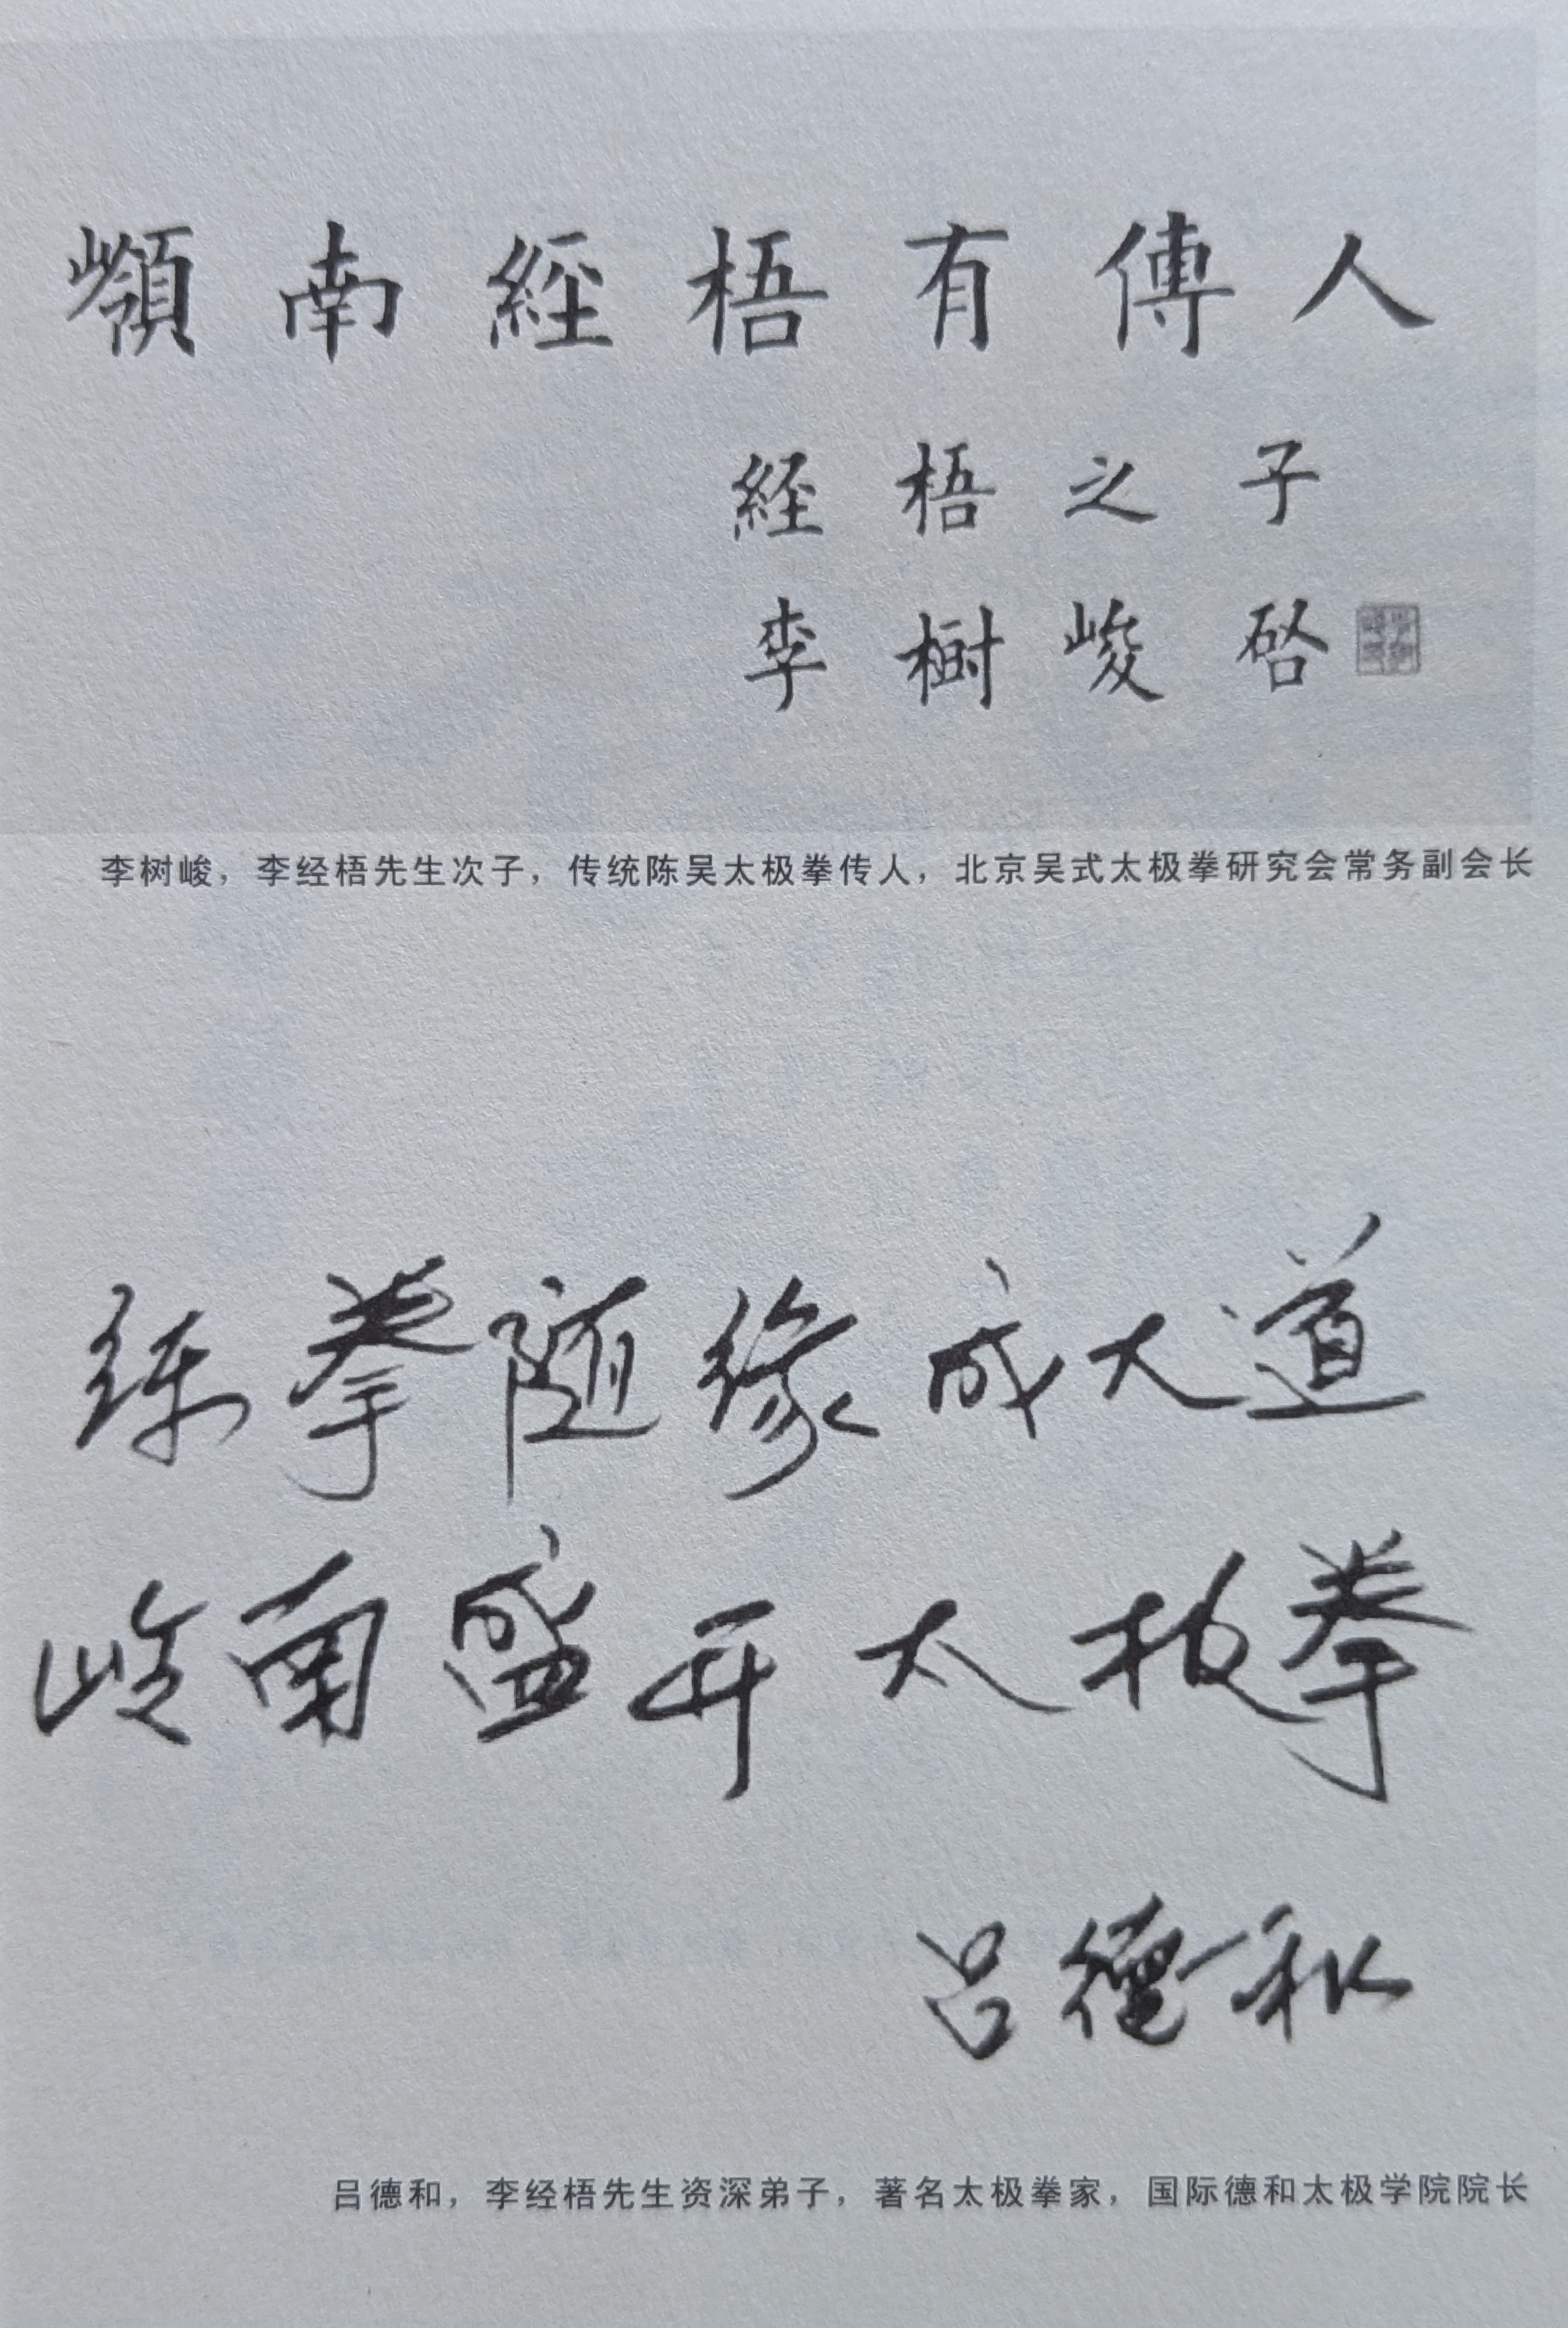 嶺南經梧有傳人
經梧之子
李樹峻啓
李树峻，李经梧先生次子，传统陈吴太极拳传人，北京吴式太极拳研究会常务副会长
练拳随缘成大道
岭南盛开太极拳
吕德和
吕德和，李经梧先生资深弟子，著名太极拳家，国际德和太极学院院长